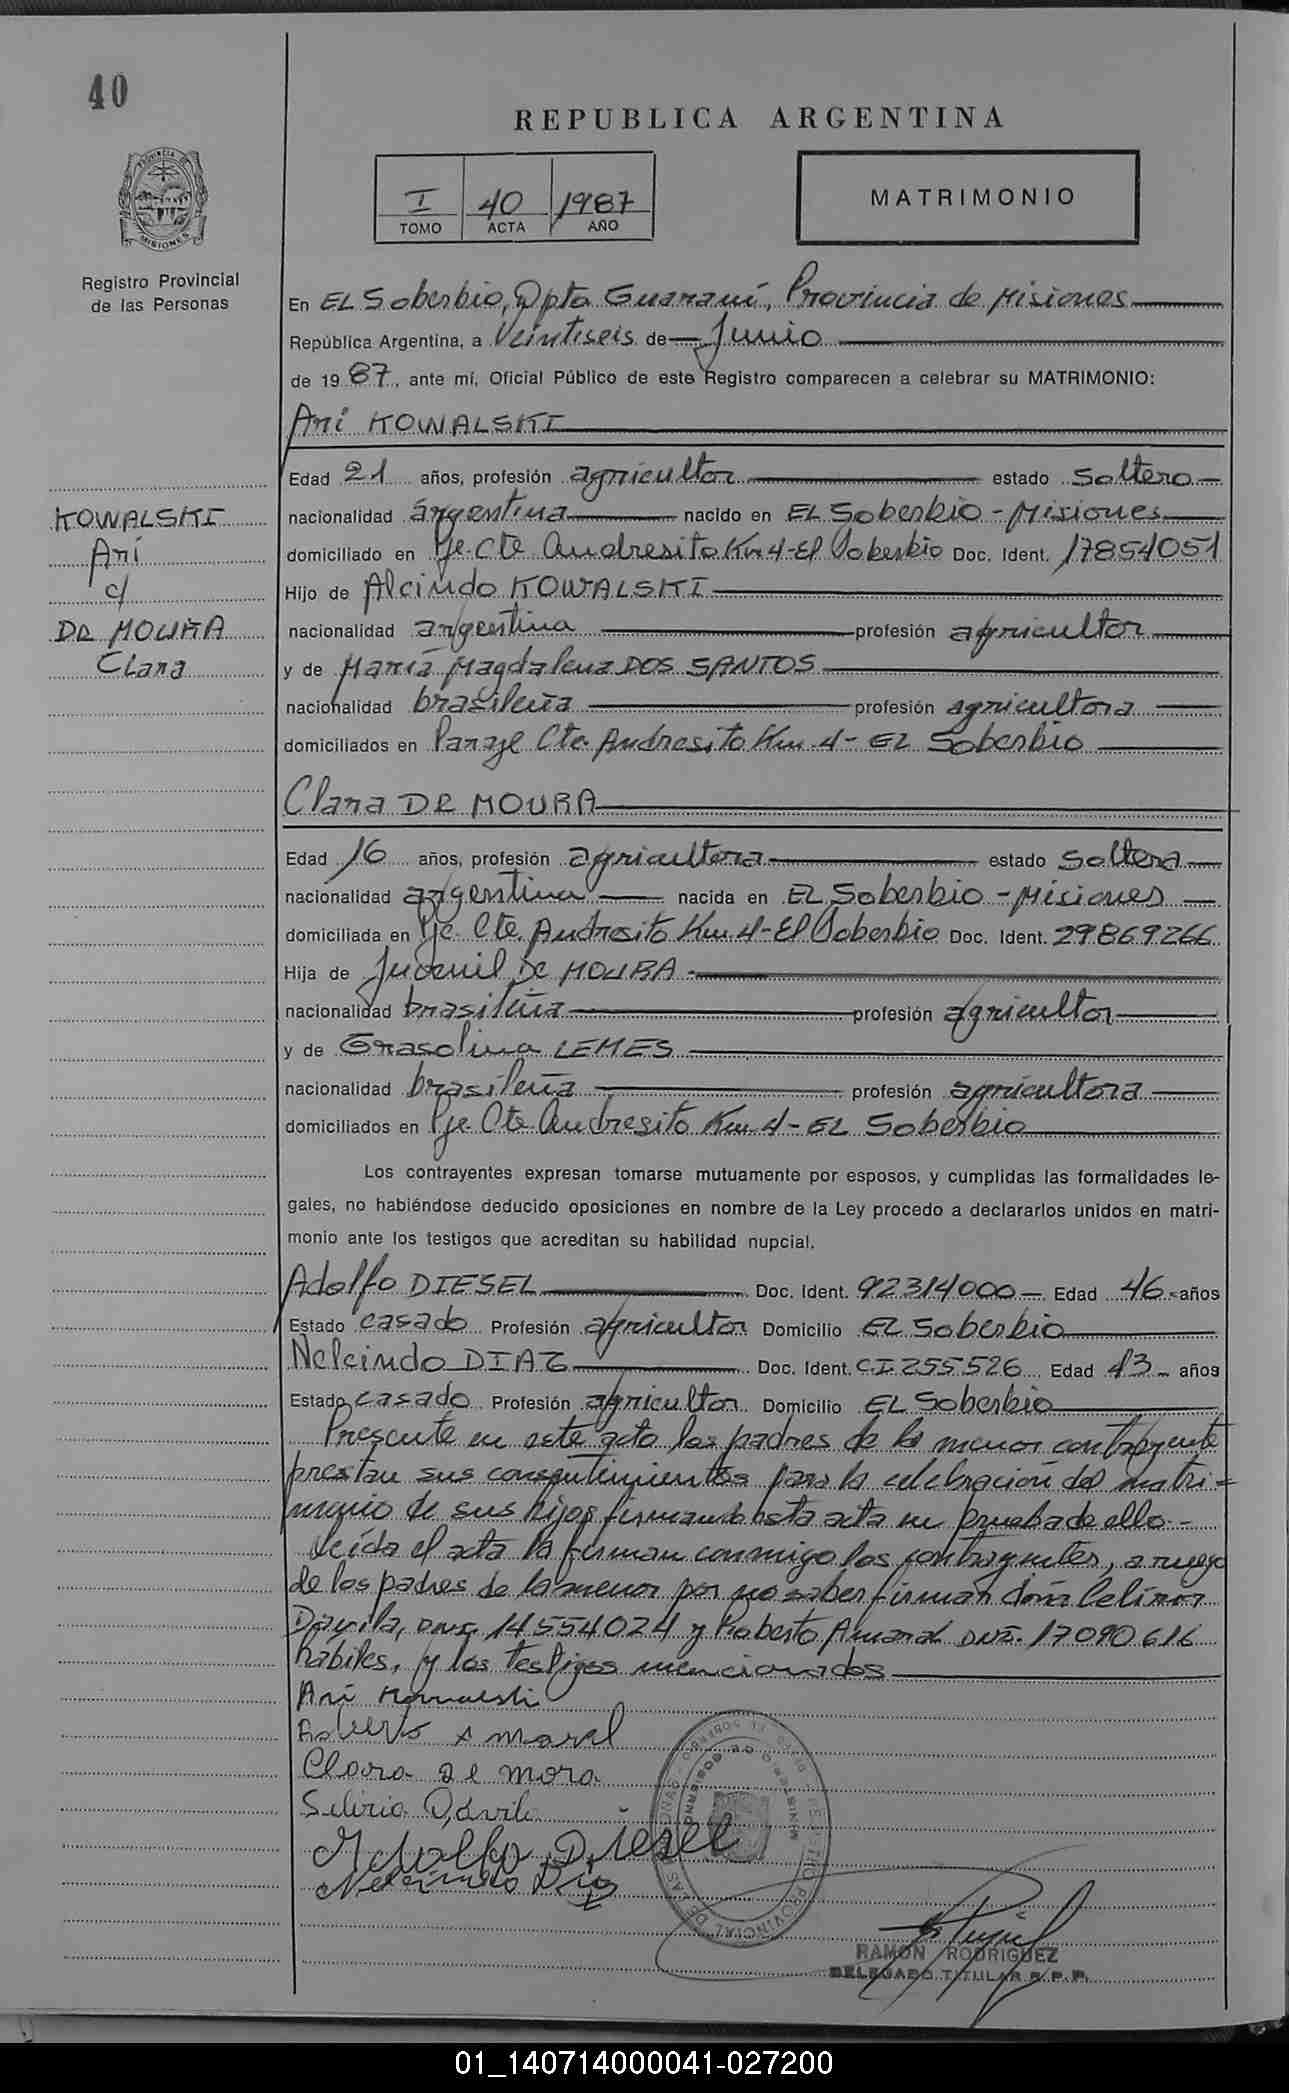 40
REPUBLICA ARGENTINA
PROVINCIA DE MISIONES
I 40 1987
TOMO ACTA AÑO
MATRIMONIO
Registro Provincial
de las Personas
En EL Soberbio, Dpto Guaraní, Provincia de Misiones
República Argentina, a veintiseis de Junio
de 1987, ante mí, Oficial Público de este Registro comparecen a celebrar su MATRIMONIO:
Arí KOWALSKI
Edad 21 años, profesión agricultor estado soltero
KOWALSKI
Arí
c/
DE MOURA
Clara
nacionalidad argentina nacido en EL Soberbio - Misiones
domiciliado en Pje. Cte Andresito Km 4-El Soberbio Doc. Ident. 17854051
Hijo de Alcindo KOWALSKI
nacionalidad argentina profesión agricultor
y de María Magdalena DOS SANTOS
nacionalidad brasileña profesión agricultora
domiciliados en Paraje Cte. Andresito Km 4- EL Soberbio
Clara DE MOURA
Edad 16 años, profesión agricultora estado soltera
nacionalidad argentina nacida en EL Soberbio - Misiones
domiciliada en Pje. Cte. Andresito Km 4-El Soberbio Doc. Ident. 29869266
Hija de Juvenil De MOURA
nacionalidad brasileña profesión agricultor
y de Grasolina LEMES
nacionalidad brasileña profesión agricultora
domiciliados en Pje. Cte Andresito Km 4- EL Soberbio
Los contrayentes expresan tomarse mutuamente por esposos, y cumplidas las formalidades le-
gales, no habiéndose deducido oposiciones en nombre de la Ley procedo a declararlos unidos en matri-
monio ante los testigos que acreditan su habilidad nupcial.
Adolfo DIESEL Doc. Ident. 92314000 Edad 46 años
Estado casado Profesión agricultor Domicilio EL Soberbio
Nelcindo DIAZ Doc. Ident. C.I. 255526 Edad 43 años
Estado casado Profesión agricultor Domicilio EL Soberbio
Presente en este acto los padres de la menor contrayente
prestan sus consentimientos para la celebración del matri=
monio de sus hijos firmando esta acta en prueba de ello.-
Leída el acta la firman conmigo los contrayentes, a ruego
de los padres de la menor por no saber firmar
Davila, 14554024 y Roberto Amaral DNI. 17090616
hábiles, y los testigos mencionados
Arí Kowalski
Roberto Amaral
Clara de mora
Selirio Davila
Adolfo Diesel
Nelcindo Diaz
RAMON RODRIGUEZ
DELEGADO TITULAR R.P.P.
01_140714000041-027200